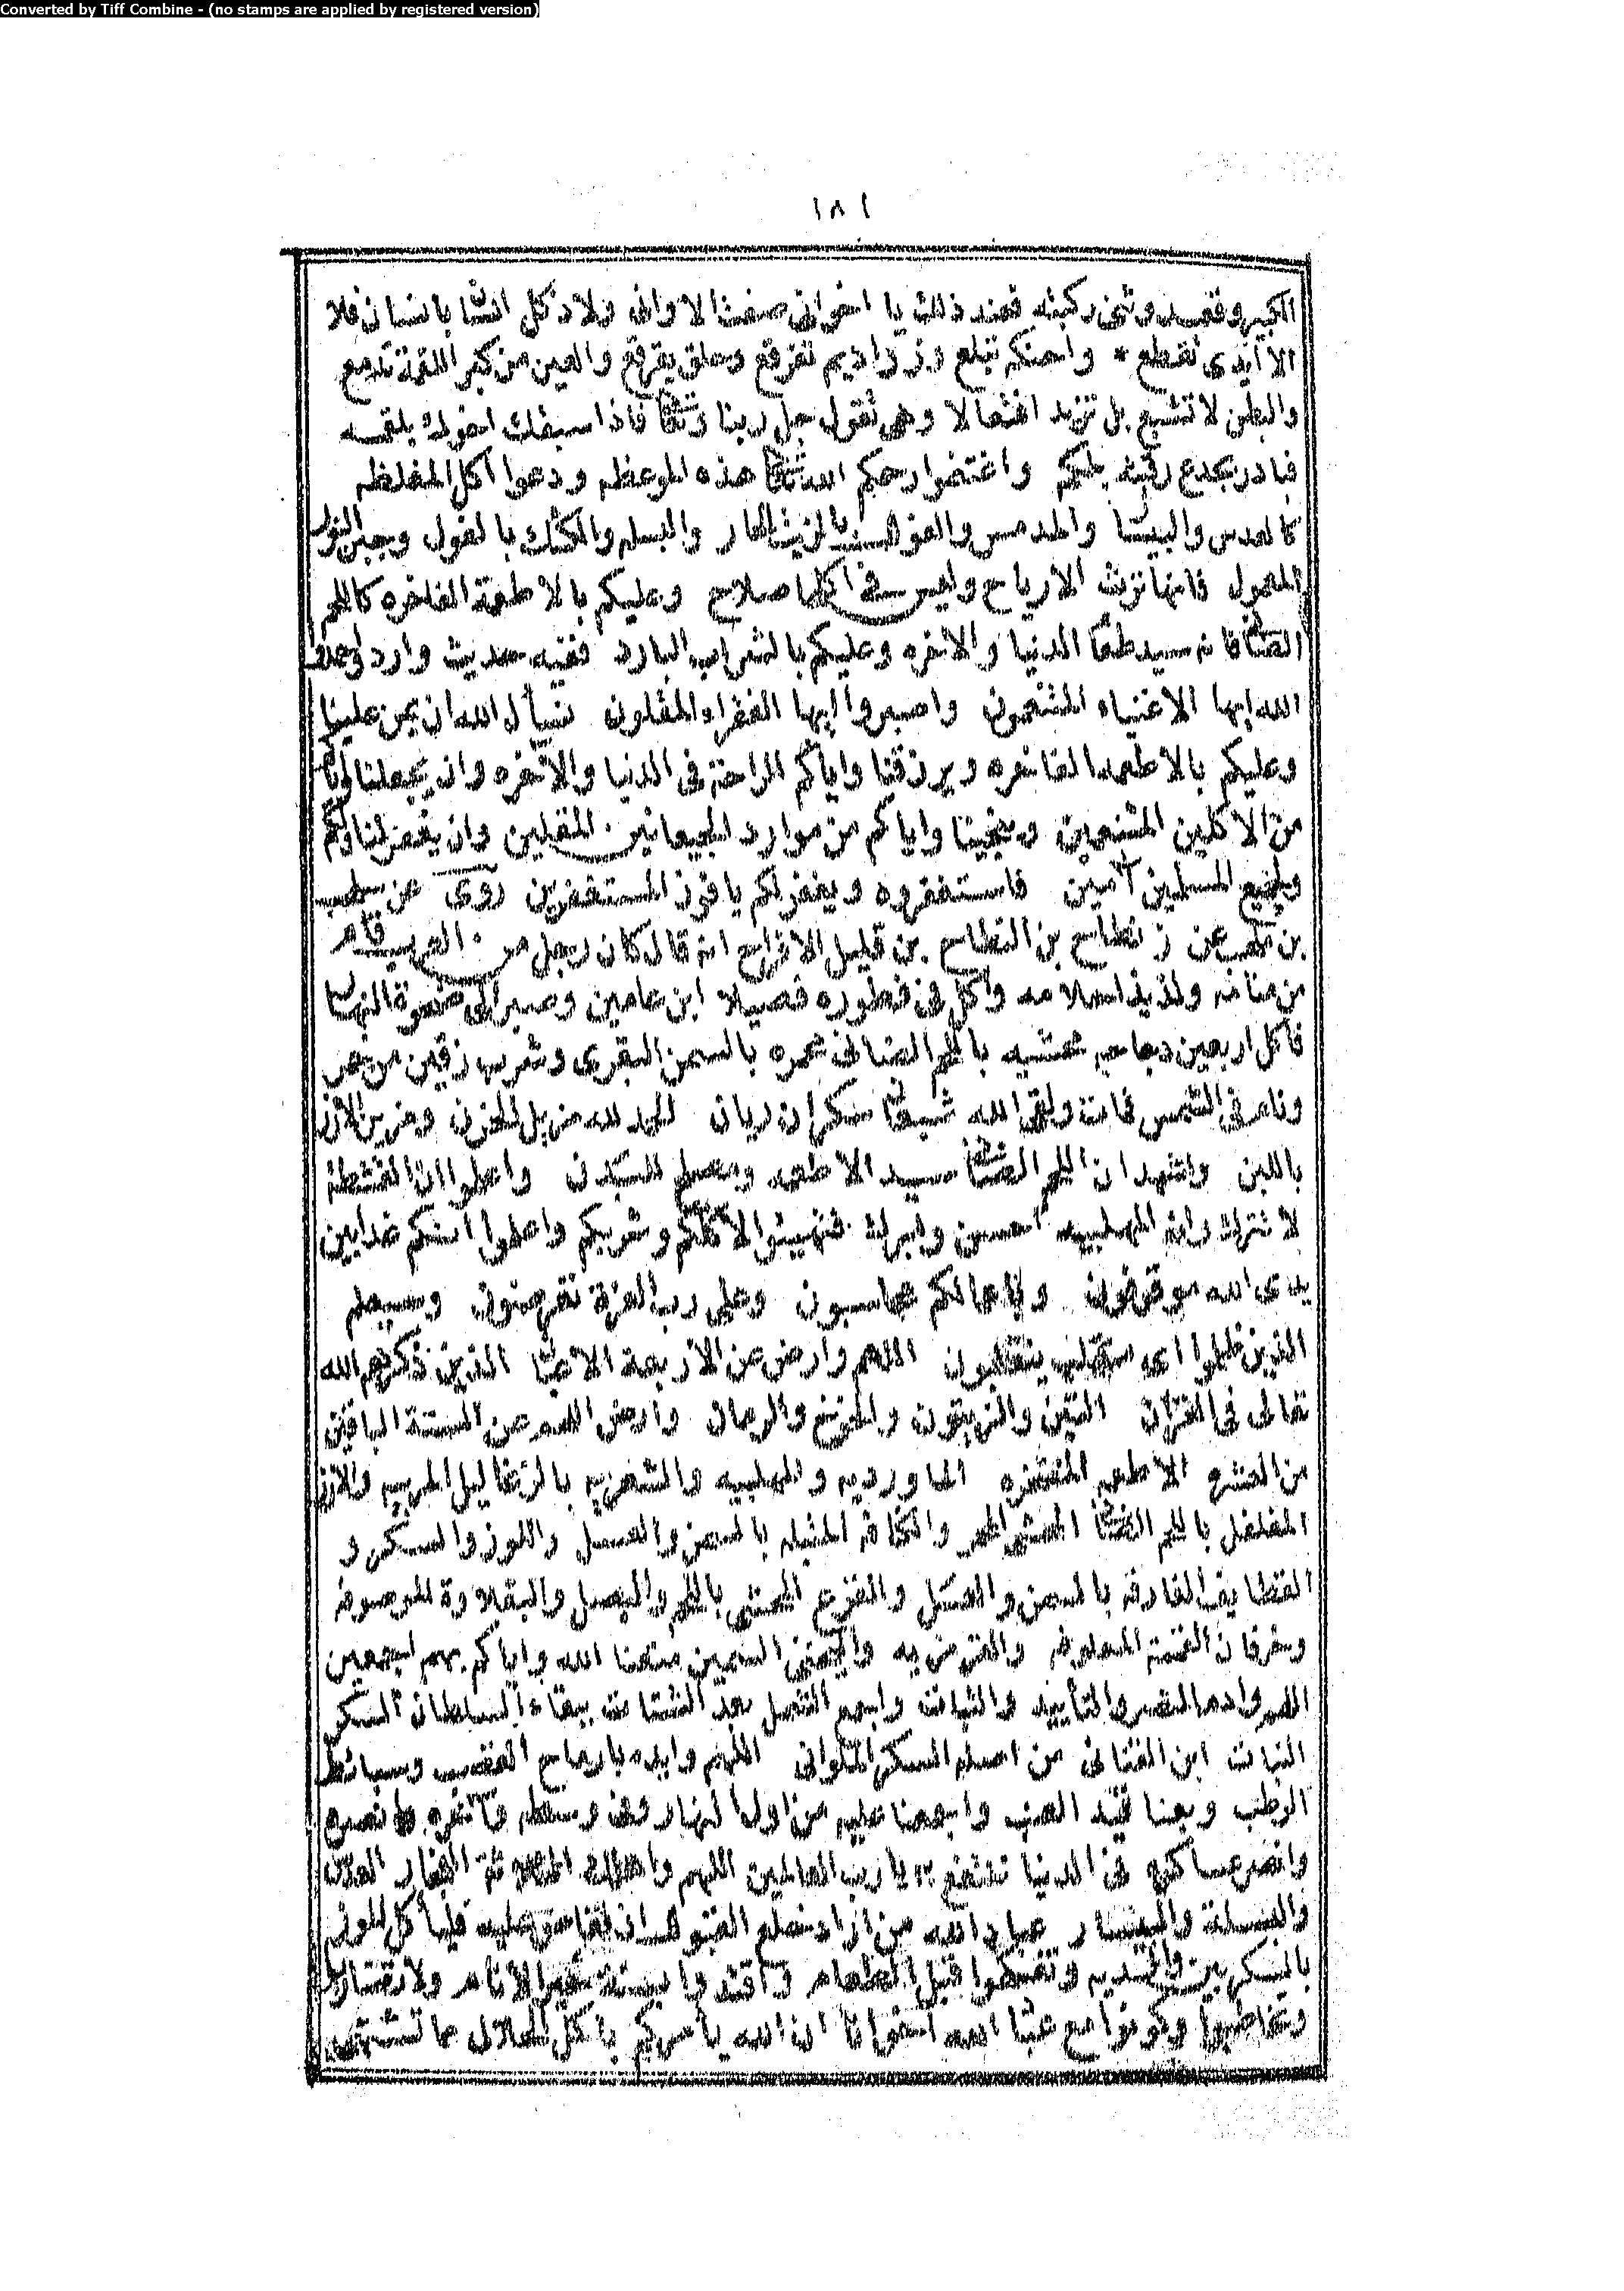 Converted by Tiff Combine - (no stamps are applied by registered version)
١٨١
الكبير وقعد وثنى ركبته فعند ذلك يا اخوانى صفت الاوانى ولاد كل انسان فلا
الا ايدى تقطع * واحنكه تبلع وزراديم تفرقع وحلق يقرقع والعين من كبر اللقمة تدمع
والبطن لا تشبع بل تزيد افتعالا وهى تقول جل ربنا وتعالى فاذا سبقك اخوك بلقمه
فبادر بجدع رقبته بلكمه واغتنموا رحمكم الله تعالى هذه الموعظه ودعوا اكل المغلظه
كالعدس والبيسار والمدمس والفول بالزيت الحار والبسله والكشك بالفول وجبن
المعمول فانها ترث الارياح وليس فى اكلها صلاح وعليكم بالاطعمة الفاخره كاللحم
الضانى فانه سيد طعام الدنيا والاخره وعليكم بالشراب البارد ففيه حديث وارد واحمدوا
الله ايها الاغنياء المتنعمون واصبروا ايها الفقراء المقلون نسأل الله ان يمن علينا
وعليكم بالاطعمه الفاخره ويرزقنا واياكم الراحة فى الدنيا والآخره وان يجعلنا واياكم
من الاكلين المتنعمين وينجينا واياكم من موارد الجيعانين المقلين وان يغفر لنا ولكم
ولجميع المسلمين آمين فاستغفروه ويغفر لكم يا فوز المستغفرين روى عن
بن عن نطاح بن النطاح بن قليل الافراح انه قال كان رجل من العرب قام
من منامه ولذيذ احلامه واكل فى فطوره فصيلا ابن عامين وصبر الى ضحوة النهار
فاكل اربعين دجاجه محشيه باللحم الضانى محمره بالسمن البقرى وشرب زقين من خمر
ونام فى الشمس فمات ولقى الله شبعان سكران ريان الحمد لله مزيل الحزن ومزين الارز
باللبن واشهد ان اللحم الضانى سيد الاطعمه ومصلح للبدن واعلموا ان القشطة
لا تترك وان المهلبيه احسن وابرك فتهيئوا لاكلكم وشربكم واعلموا انكم غدا بين
يدى الله موقوفون وباعمالكم محاسبون وعلى رب العزة تعرضون وسيعلم
الذين ظلموا اى منقلب ينقلبون اللهم وارض عن الاربعة الاعيان الذين ذكرتهم الله
تعالى فى القرآن التين والزيتون والخوخ والرمان وارض اللهم عن الستة الباقين
من العشرة الاطعمه المفتخره الماورديه والمهلبيه والشعريه بالزغاليل المربيه والارز
المفلفل باللحم الضانى المحشى المحمر والكنافه المتبله بالسمن والعسل واللوز والسكر و
القطايف الغارقه بالسمن والعسل والقرع المحشى باللحم والبصل والبقلاوة المرصوصه
وخرفان المعلوفه والقرمزيه والجدى السمين متعنا الله واياكم بهم اجمعين
اللهم وادم النصر والتأييد والثبات واجمع الشمل بعد الشتات ببقاء السلطان السكر
النبات ابن القنانى من اصله السكر الحلوانى اللهم وايده برماح القصب وسبائط
الرطب وبعنا قيد العنب واجمعنا عليه من اول النهار وفى وسطه وآخره
وانصر عساكره فى الدنيا تنتفع به يا رب العالمين اللهم واهلك الثلاثة الفجار العدس
والبسلة والبيسار عباد الله من اراد منكم فليأكل اللوز
بالسكر وتفكهوا قبل الطعام واقتدوا بسنة خير الانام ولا
وكونوا مع عباد الله اخوانا ان الله يأمركم باكل الحلال ما تشتهى